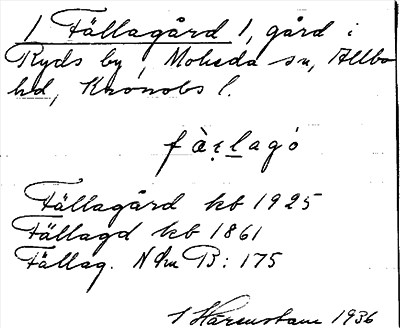 1 Fällagård 1, gård i
Ryds by, Moheda sn, Allbo
hd, Kronobs l.
fàɽlagó
Fällagård kb 1925
Fällagd kb 1861
Fällag. N Sm B: 175
1936